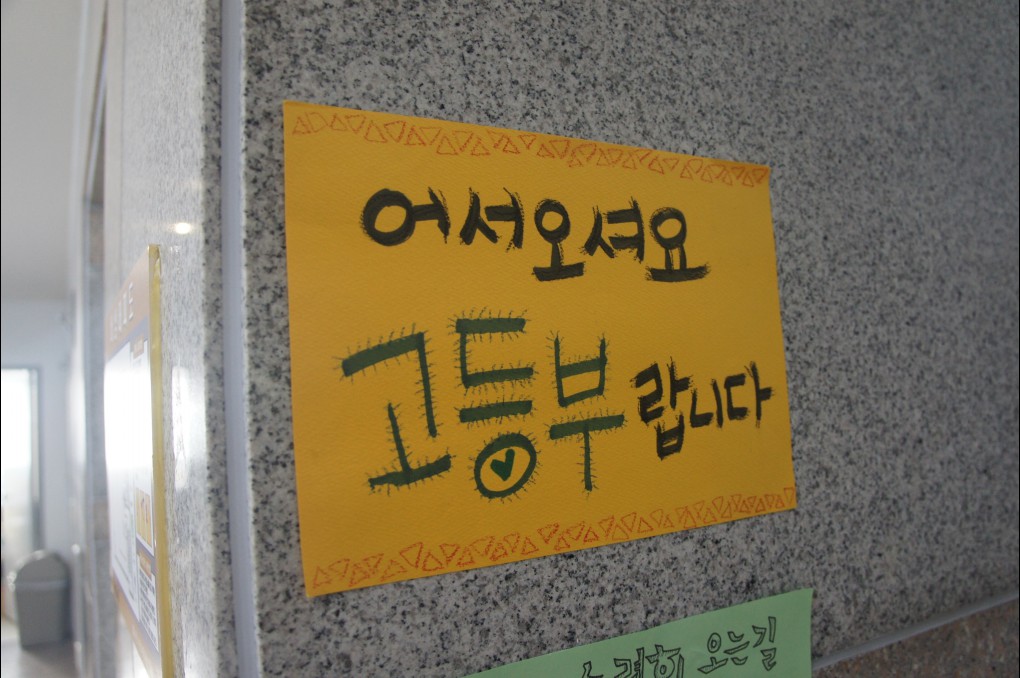 어서오셔요
고등부랍니다
오는길